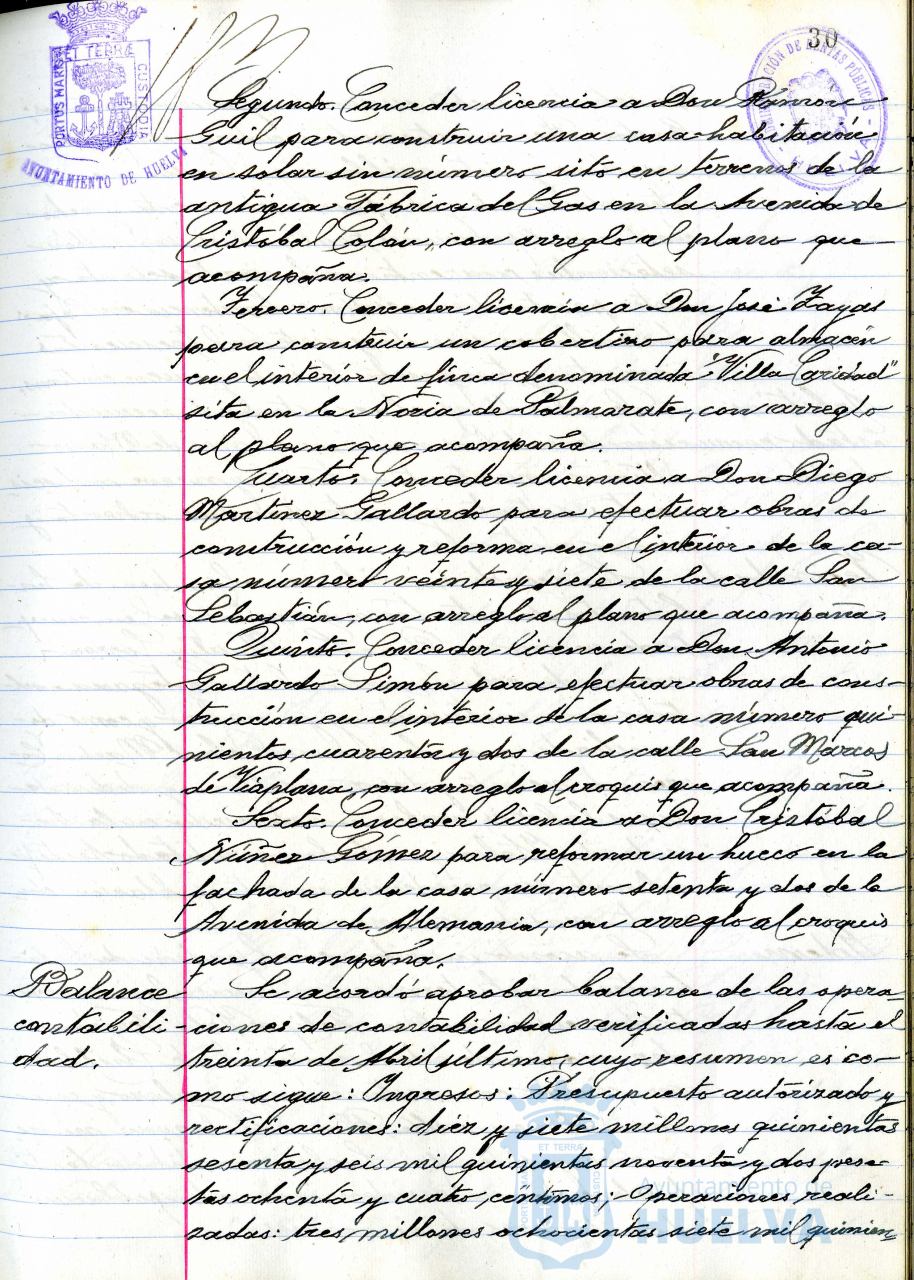 30
ET TERRÆ
PORTUS MARIS
CUSTODIA
AYUNTAMIENTO DE HUELVA
Segundo. Conceder licencia a Don Ramón
Guil para construir una casa-habitación
en solar sin número sito en terrenos de la
antigua Fábrica del Gas en la Avenida de
Cristóbal Colón, con arreglo al plano que
acompaña.
Tercero. Conceder licencia a Don José Zayas
para construir un cobertizo para almacén
en el interior de finca denominada "Villa Caridad"
sita en la Noria de Palmarate, con arreglo
al plano que acompaña.
Cuarto. Conceder licencia a Don Diego
Martínez Gallardo para efectuar obras de
construcción y reforma en el interior de la ca-
sa número veinte y siete de la calle San
Sebastián, con arreglo al plano que acompaña.
Quinto. Conceder licencia a Don Antonio
Gallardo Simón para efectuar obras de cons-
trucción en el interior de la casa número qui-
nientos cuarenta y dos de la calle San Marcos
de Viaplana, con arreglo al croquis que acompaña.
Sexto. Conceder licencia a Don Cristóbal
Núñez Gómez para reformar un hueco en la
fachada de la casa número setenta y dos de la
Avenida de Alemania, con arreglo al croquis
que acompaña.
Balance
contabili-
dad.
Se acordó aprobar balance de las opera-
ciones de contabilidad verificadas hasta el
treinta de Abril último, cuyo resumen es co-
mo sigue: Ingresos: Presupuesto autorizado y
rectificaciones: diez y siete millones quinientas
sesenta y seis mil quinientas noventa y dos pese-
tas ochenta y cuatro céntimos; Operaciones reali-
zadas: tres millones ochocientas siete mil quinien-
Ayuntamiento de
HUELVA